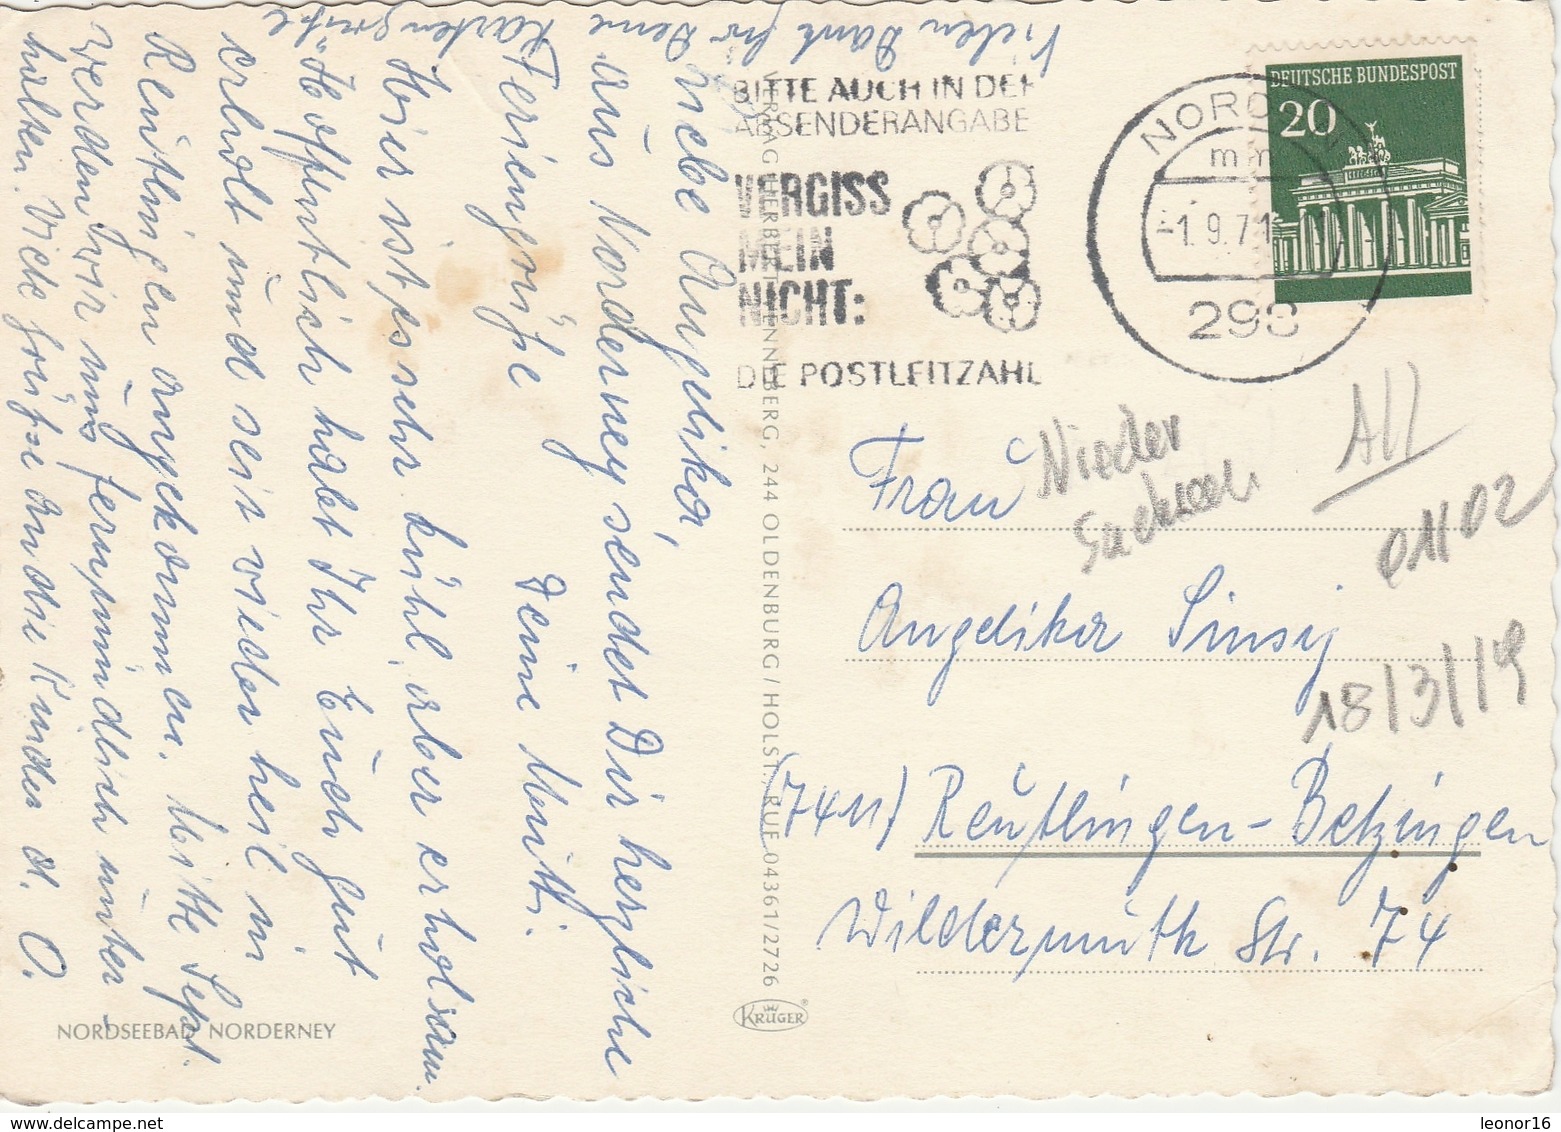 Vielen Dank für Deine Kartengrüße
Liebe Angelika,
aus Norderney sendet Dir herzliche
Feriengrüße Deine Mutti.
Hier ist es sehr kühl, aber erholsam.
Hoffentlich habt Ihr Euch gut
erholt und seid wieder heil in
Reutlingen angekommen. Mitte Sept.
werden wir uns fernmündlich unter-
halten. Viele Grüße an die Kinder d. O.
NORDSEEBAD NORDERNEY
VERLAG HERBERT HENNEBERG, 244 OLDENBURG / HOLST., RUF 04361/2726
KRÜGER
BITTE AUCH IN DER
ABSENDERANGABE
VERGISS
MEIN
NICHT:
DIE POSTLEITZAHL
NORDEN
mm
-1.9.71
298
DEUTSCHE BUNDESPOST
20
Frau
Angelika Sinsig
(7411) Reutlingen-Betzingen
Wildermuth Str. 74
Nieder
Sachsen
All
01102
18/3/19
leonor16